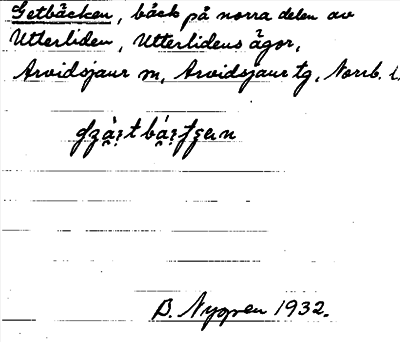 Getbäcken, bäck på norra delen av
Utterliden, Utterlidens ägor,
Arvidsjaur m, Arvidsjaur tg, Norrb. l.
B. Nygren 1932.